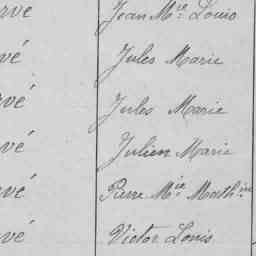 rvé Jean Mie Louis
vé Jules Marie
rvé Jules Marie
vé Julien Marie
rvé Pierre Mie Mathin
vé Victor Louis